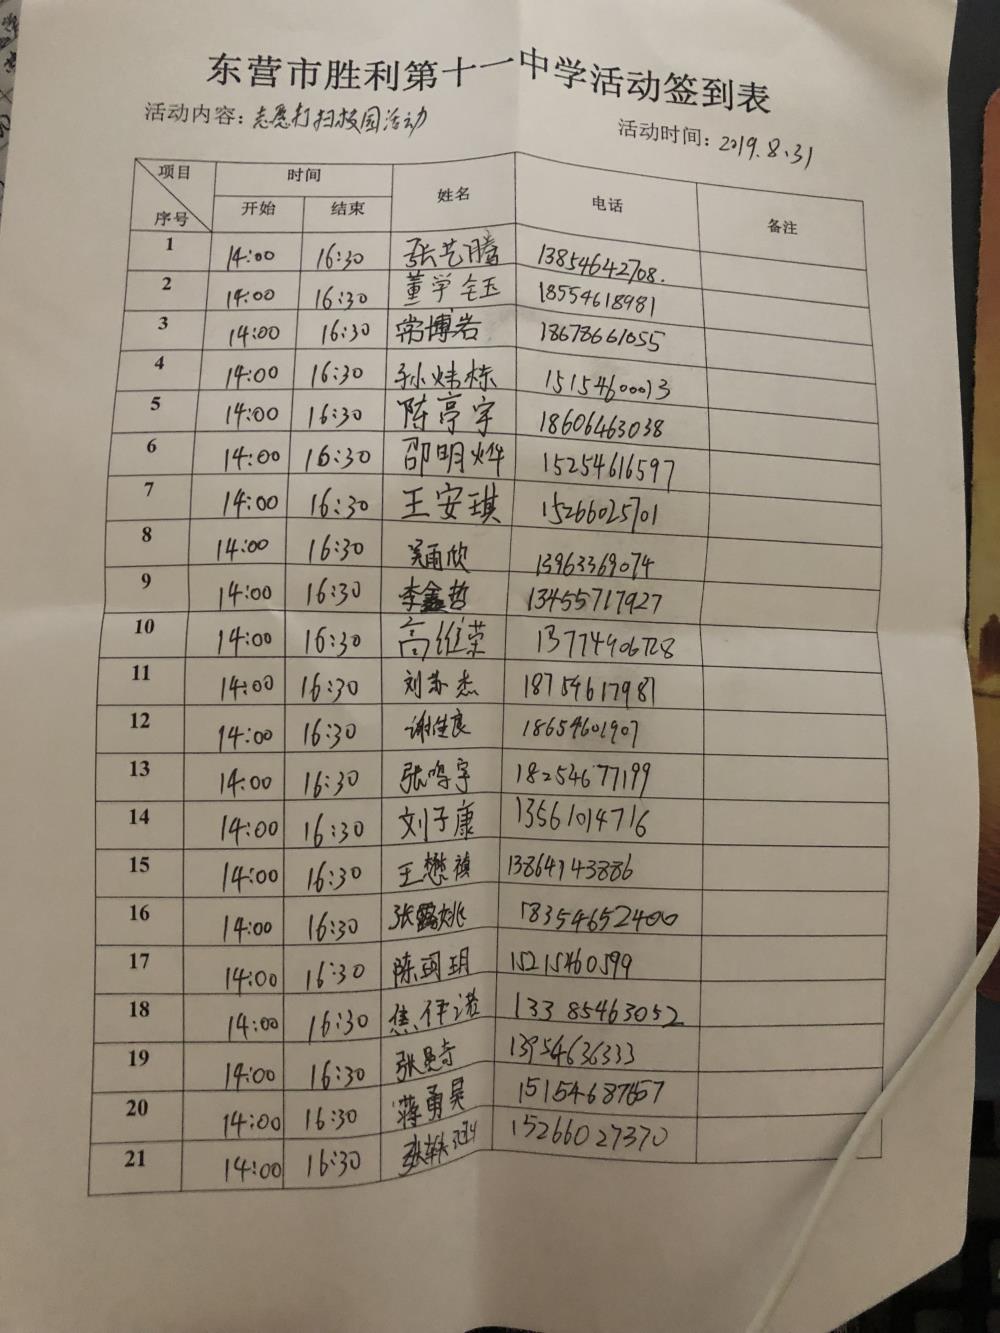 东营市胜利第十一中学活动签到表
活动内容：志愿打扫校园活动 活动时间：2019.8.31
项目 时间 姓名 电话 备注
序号 开始 结束
1 14:00 16:30 张艺腾 13854642708.
2 14:00 16:30 董学钰 18554618981
3 14:00 16:30 常博岩 18678661055
4 14:00 16:30 孙炜栋 15154600013
5 14:00 16:30 陈亭宇 18606463038
6 14:00 16:30 邵明烨 15254616597
7 14:00 16:30 王安琪 15266025701
8 14:00 16:30 吴雨欣 13963369074
9 14:00 16:30 李鑫哲 13455717927
10 14:00 16:30 高维荣 13774906728
11 14:00 16:30 刘苏杰 18754617981
12 14:00 16:30 谢佳良 18654601907
13 14:00 16:30 张鸣宇 18254677199
14 14:00 16:30 刘子康 13561014716
15 14:00 16:30 王懋禛 13864743886
16 14:00 16:30 张露姚 18354652400
17 14:00 16:30 陈玥 15215460599
18 14:00 16:30 焦伊诺 13385463052
19 14:00 16:30 张曼奇 13954636333
20 14:00 16:30 蒋勇昊
21 14:00 16:30 张轶 15266027370